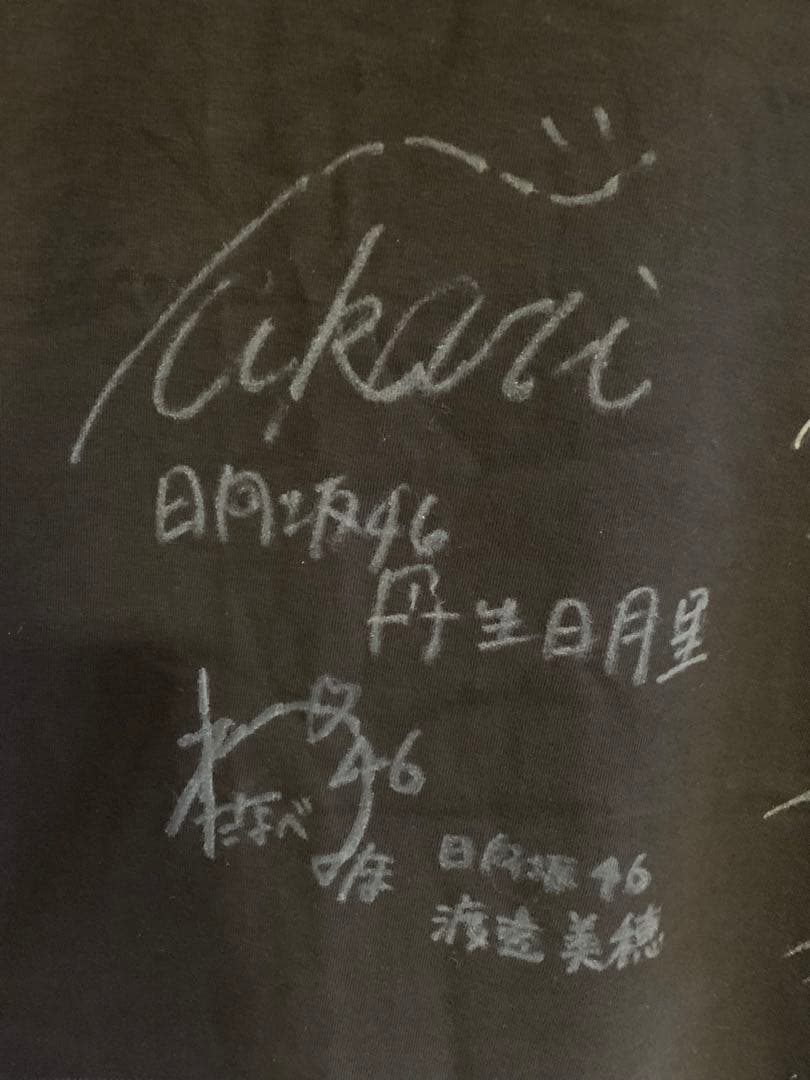 akari
日向坂46
丹生明里
46
日向坂46
渡邉美穂